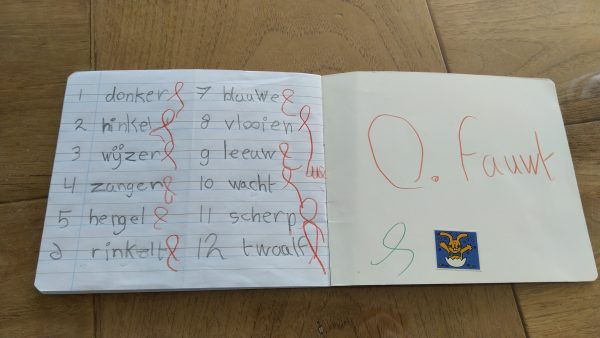 1 donker
2 hinkel
3 wijzer
4 zanger
5 hengel
6 rinkelt
7 blauwe
8 vlooien
9 leeuw
10 wacht
11 scherp
12 twoalf
0. fauwt